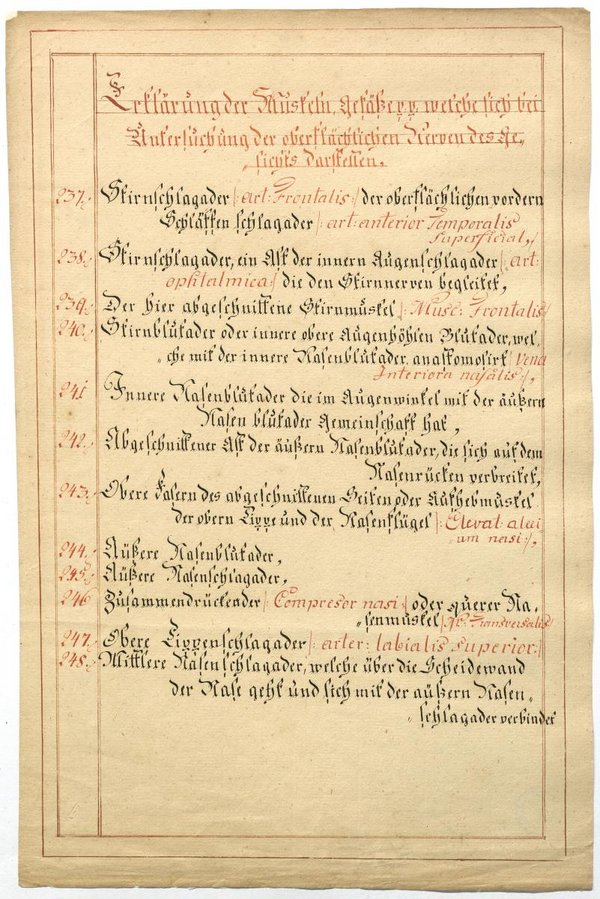 Erklärung der Muskeln, Gefäße p.p. welche sich bei
Untersuchung der oberflächlichen Nerven des Ge¬
sichts darstellen.
237. Stirnschlagader /: art: Frontalis :/ der oberflächlichen vordern
Schläffen schlagader /: art: anterior Temporalis
superficial,/
238. Stirnschlagader, ein Ast der innern Augenschlagader /: art:
ophtalmica :/ die den Stirnnerven begleitet,
239. Der hier abgeschnittene Stirnmuskel /: Musc: Frontalis
240. Stirnblutader oder innere obere Augenhöhlen Blutader, wel-
che mit der innere Nasenblutader anastomosirt /: Vena
Interiora nasalis :/,
241 Innere Nasenblutader die im Augenwinkel mit der äußern
Nasen blutader Gemeinschaft hat,
242. Abgeschnittener Ast der äußern Nasenblutader, die sich auf dem
Nasenrücken verbreitet,
243. Obere Fasern des abgeschnittenen Seiten oder Aufhebmuskel
der obern Lippe und der Nasenflügel /: Elevat: alai
um nasi :/,
244. Äußere Nasenblutader,
245. Äußere Nasenschlagader,
246 Zusammendrückender /: Compresor nasi :/ oder querer Na-
senmuskel /: Transversalis
247. Obere Lippenschlagader /: arter: labialis superior :/
248. Mittlere Nasenschlagader, welche über die Scheidewand
der Nase geht und sich mit der außern Nasen
schlagader verbindet